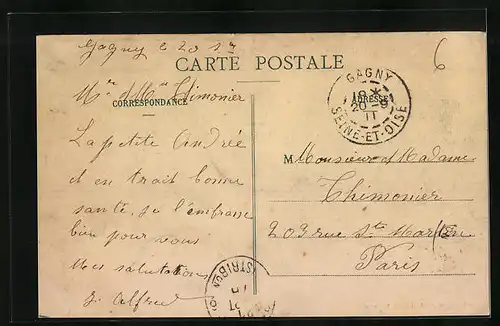 Gagny le 20 
CARTE POSTALE
6
Mr et Mme Thimonier
CORRESPONDANCE
ADRESSE
GAGNY
18 *
20 -9
11
SEINE-ET-OISE
La petite Andrée
et en trait bonne
santé, je l'embrasse
bien pour vous
Mes salutations
Alfred
M Monsieur et Madame
Thimonier
203 rue St Martin
Paris
DISTRIBON